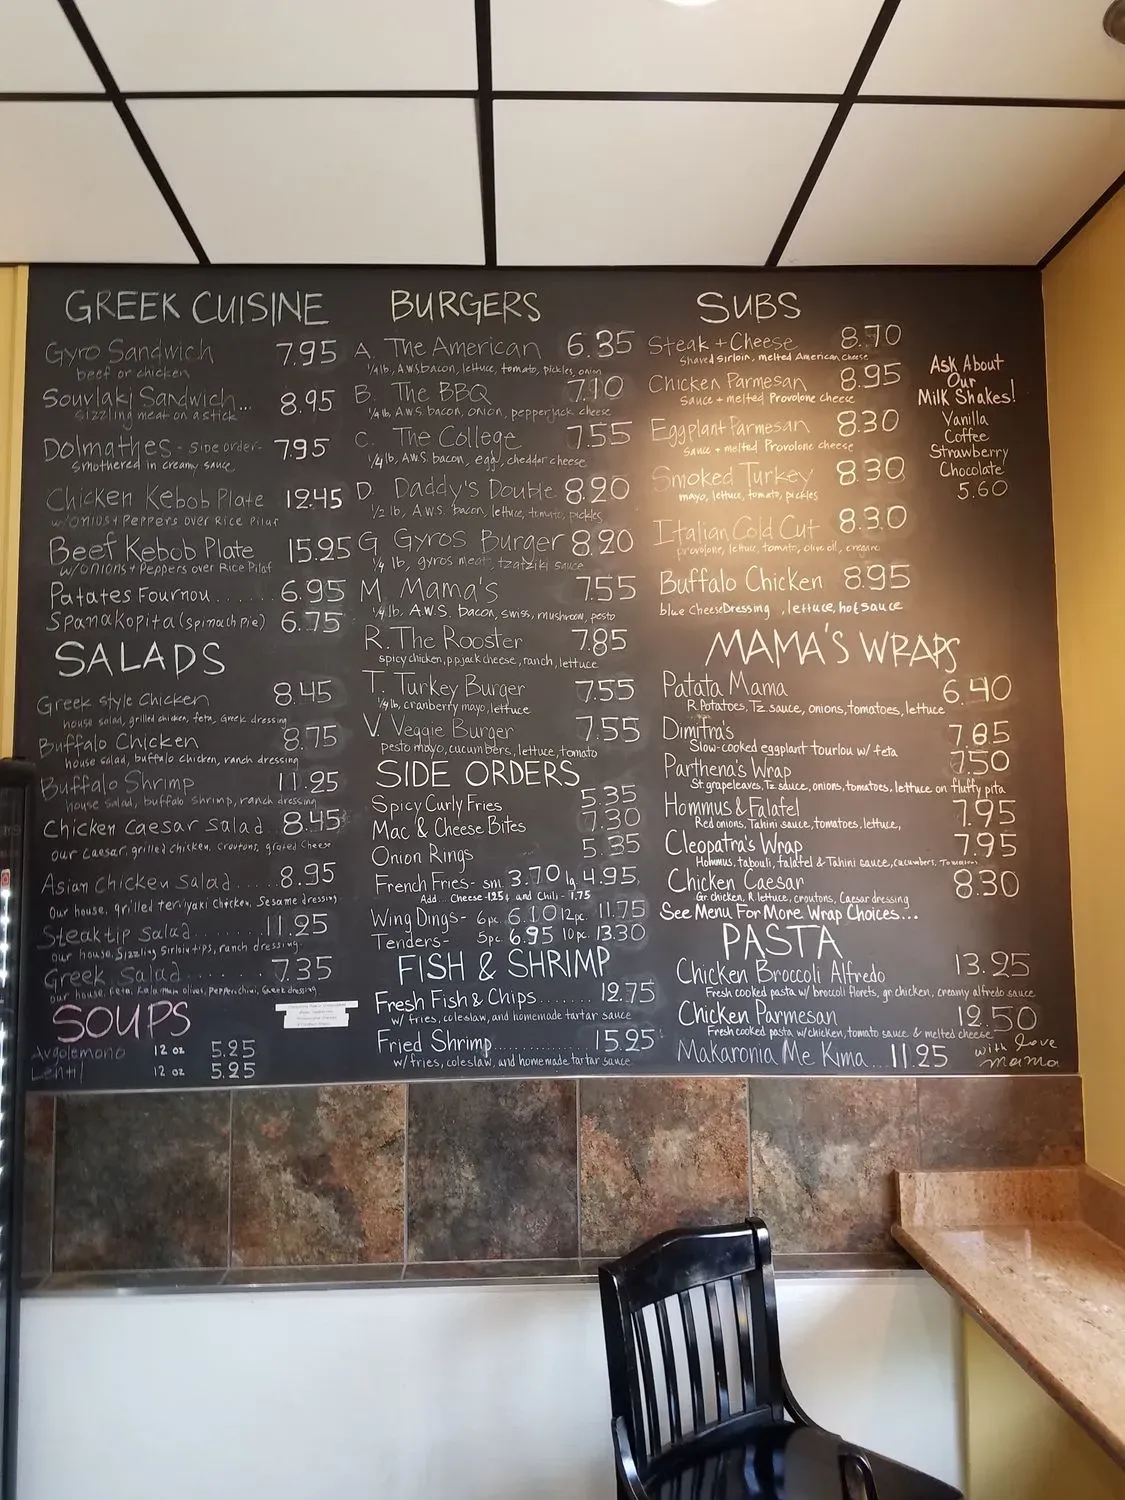 GREEK CUISINE
Gyro Sandwich 7.95
beef or chicken
Souvlaki Sandwich... 8.95
sizzling meat on a stick
Dolmathes - side order- 7.95
Smothered in creamy sauce
Chicken Kebob Plate 12.45
w/onios + Peppers over Rice Pilaf
Beef Kebob Plate 15.25
w/onions + Peppers over Rice Pilaf
Patates Fournou..... 6.95
Spanakopita (spinach pie) 6.75
SALADS
Greek Style Chicken 8.45
house salad, grilled chicken, feta, Greek dressing
Buffalo Chicken 8.75
house salad, buffalo chicken, ranch dressing
Buffalo Shrimp 11.25
house salad, buffalo shrimp, ranch dressing
Chicken Caesar Salad.. 8.45
our caesar, grilled chicken, croutons, grated cheese
Asian Chicken Salad..... 8.95
our house, grilled teriyaki chicken, Sesame dressing
Steaktip Salad....... 11.25
our house, Sizzling Sirloin tips, ranch dressing
Greek Salad....... 7.35
our house, feta, Kalamata olives, Pepperchini, Greek dressing
SOUPS
Avgolemono 12 oz 5.25
Lentil 12 oz 5.25
BURGERS
A. The American 6.35
1/4 lb, A.W.S bacon, lettuce, tomato, pickles, onion
B. The BBQ 7.10
1/4 lb, A.W.S. bacon, onion, pepperjack cheese
C. The College 7.55
1/4 lb, A.W.S. bacon, egg, cheddar cheese
D. Daddy's Double 8.20
1/2 lb, A.W.S. bacon, lettuce, tomato, pickles
G. Gyros Burger 8.20
1/4 lb, gyros meat, tzatziki sauce
M. Mama's 7.55
1/4 lb, A.W.S. bacon, swiss, mushroom, pesto
R. The Rooster 7.85
spicy chicken, p.p.jack cheese, ranch, lettuce
T. Turkey Burger 7.55
1/4 lb, cranberry mayo, lettuce
V. Veggie Burger 7.55
pesto mayo, cucumbers, lettuce, tomato
SIDE ORDERS
Spicy Curly Fries 5.35
Mac & Cheese Bites 7.30
Onion Rings 5.35
French Fries- sm. 3.70 lg. 4.95
Add... Cheese -1.25 & and Chili - 1.75
Wing Dings- 6pc. 6.10 12pc. 11.75
Tenders- 5pc. 6.95 10 pc. 13.30
FISH & SHRIMP
Fresh Fish & Chips......... 12.75
w/ fries, coleslaw, and homemade tartar sauce
Fried Shrimp............. 15.25
w/ fries, coleslaw, and homemade tartar sauce
SUBS
Steak + Cheese 8.70
Shaved Sirloin, melted American cheese
Chicken Parmesan 8.95
Sauce + melted Provolone cheese
Eggplant Parmesan 8.30
Sauce + melted Provolone cheese
Smoked Turkey 8.30
mayo, lettuce, tomato, pickles
Italian Cold Cut 8.30
provolone, lettuce, tomato, olive oil,
Buffalo Chicken 8.95
blue cheese Dressing, lettuce, hot sauce
Ask About
Our
Milk Shakes!
Vanilla
Coffee
Strawberry
Chocolate
5.60
MAMA'S WRAPS
Patata Mama 6.40
R.Potatoes, Tz sauce, onions, tomatoes, lettuce
Dimitra's 7.85
Slow-cooked eggplant tourlou w/ feta
Parthena's Wrap 7.50
St. grapeleaves, Tz sauce, onions, tomatoes, lettuce on fluffy pita
Hommus & Falafel 7.95
Red onions, Tahini sauce, tomatoes, lettuce,
Cleopatra's Wrap 7.95
Hommus, tabouli, falafel & Tahini sauce, cucumbers, Tomatoes
Chicken Caesar 8.30
Gr. chicken, R. lettuce, croutons, Caesar dressing
See Menu For More Wrap Choices...
PASTA
Chicken Broccoli Alfredo 13.25
Fresh cooked pasta w/ broccoli florets, gr chicken, creamy alfredo sauce
Chicken Parmesan 12.50
Fresh cooked pasta w/chicken, tomato sauce & melted cheese
Makaronia Me Kima... 11.25
with love
mama